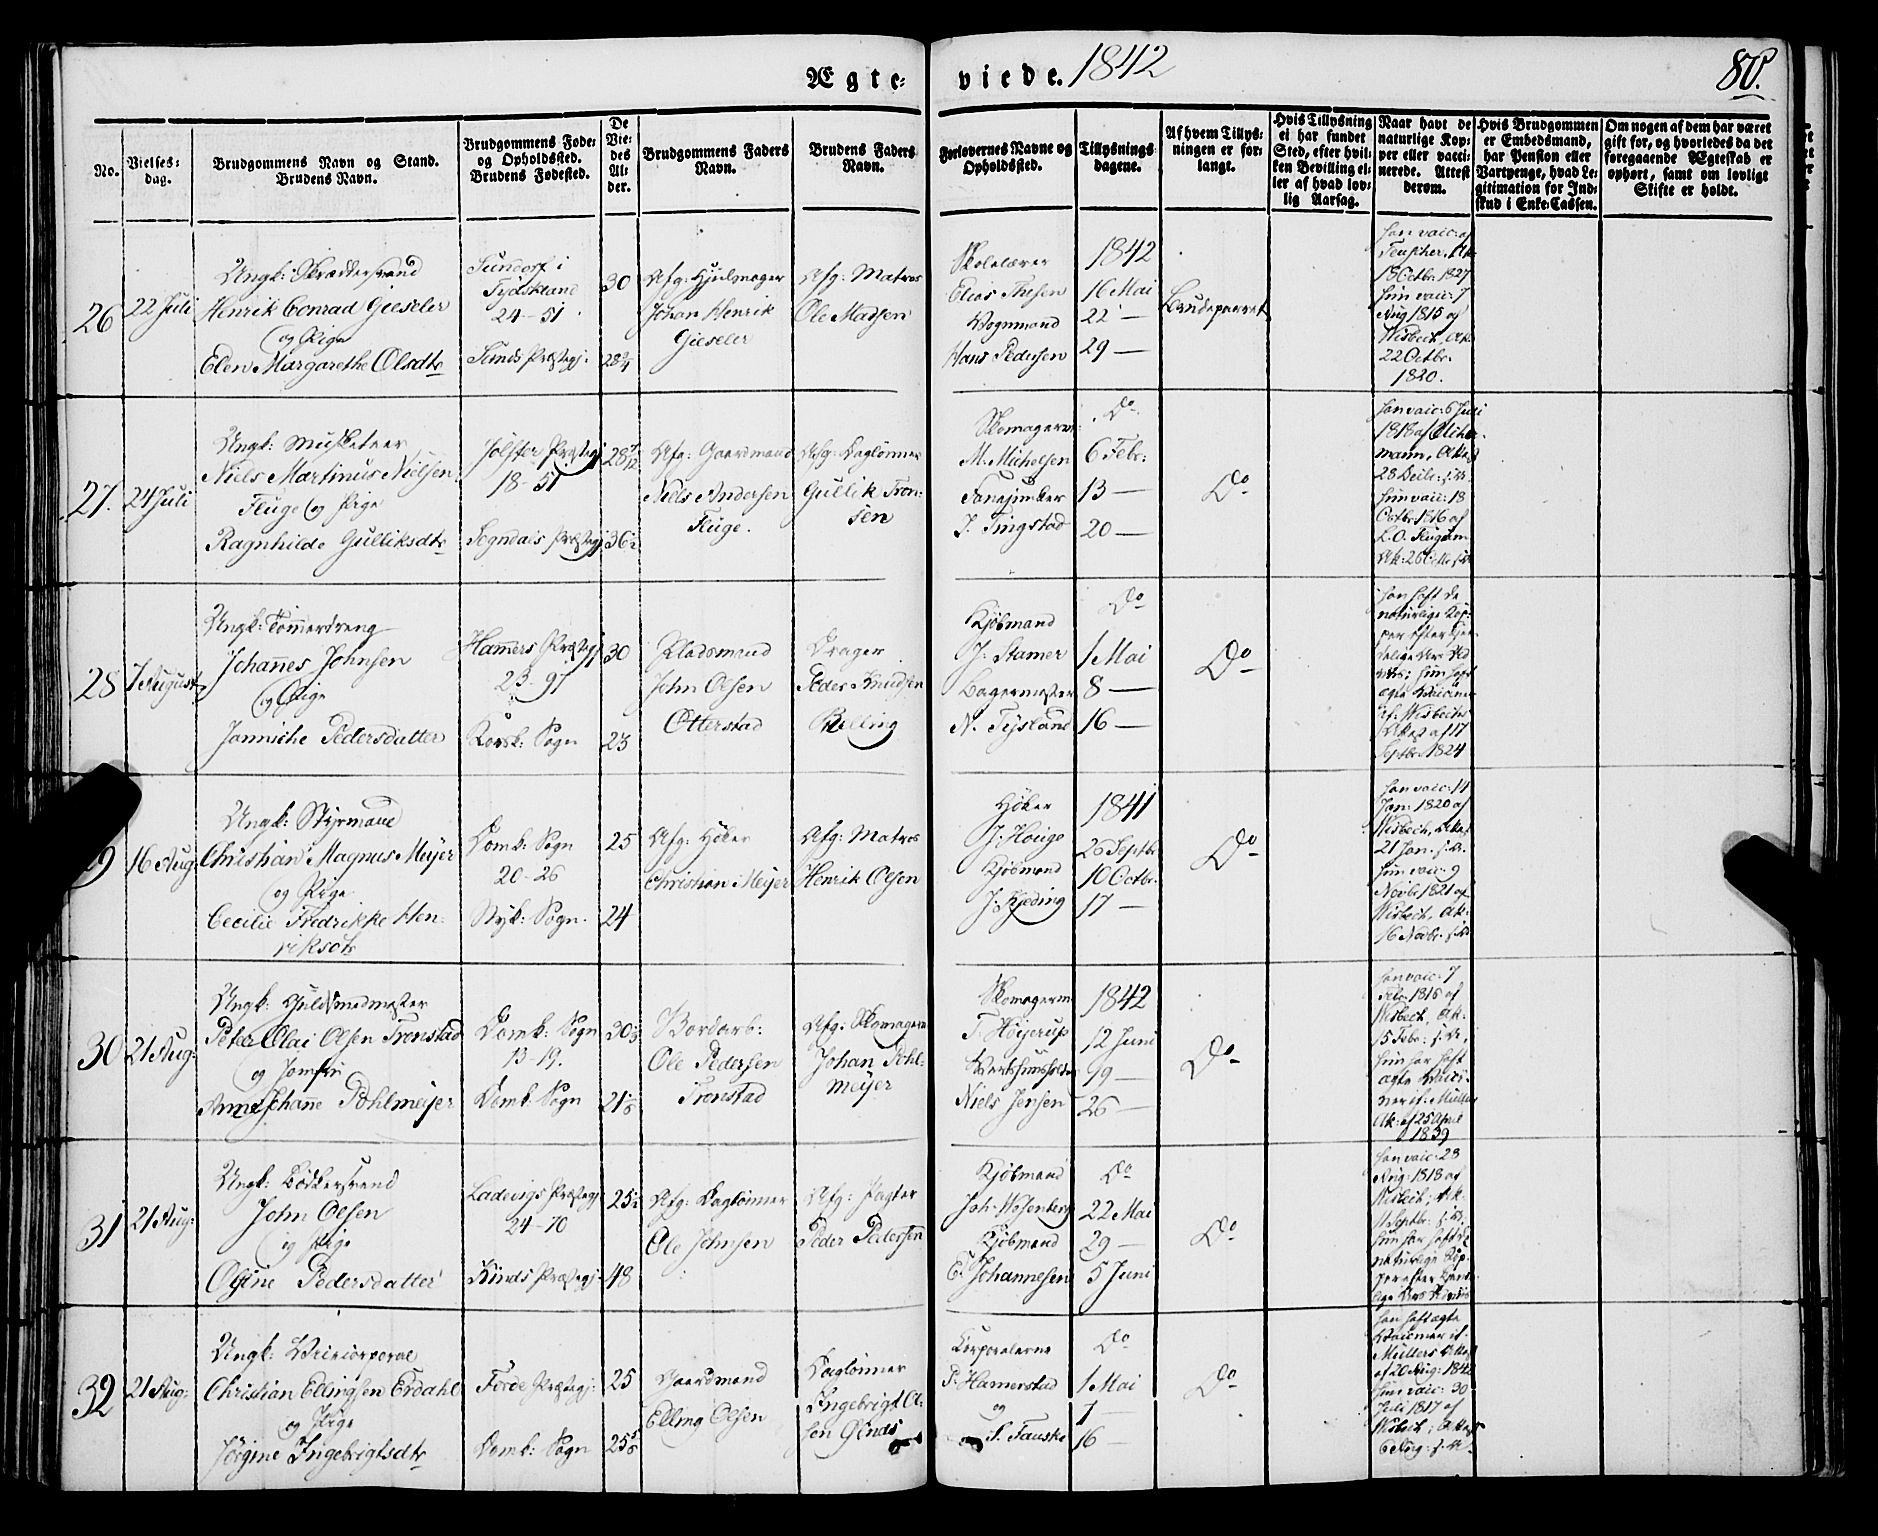 Ægte-
viede. 1842
80.
No.
Vielses-
dag.
Brudgommens Navn og Stand.
Brudens Navn.
Brudgommens Føde-
og Opholdssted.
Brudens Fødested.
De
Vie-
des
Al-
der.
Brudgommens Faders
Navn.
Brudens Faders
Navn.
Forlovernes Navne og
Opholdssted.
Tillysnings-
dagene.
Af hvem Tillys-
ningen er for-
langt.
Hvis Tillysning
ei har fundet
Sted, efter hvil-
ken Bevilling el-
ler af hvad lov-
lig Aarsag.
Naar havt de
naturlige Kop-
per eller vacci-
nerede. Attest
derom.
Hvis Brudgommen
er Embedsmand,
har Pension eller
Vartpenge, hvad Le-
gitimation for Ind-
skud i Enke-Cassen.
Om nogen af dem har været
gift før, og hvorledes da det
foregaaende Ægteskab er
ophørt, samt om lovligt
Skifte er holdt.
26
22 Juli
Ungk: Skræddersvend
Henrik Conrad Gieseler
og Pige
Elen Margarethe Olsdtr
Sundorf i
Tydskland
24-51
Sunds Præstegj.
30
28 3/4
Afg: Hjulmager
Johan Henrik
Gieseler
Afg: Matros
Ole Madsen
Skolelærer
Elias Thesen
Vognmand
Hans Pedersen
1842
16 Mai
22 —
29 —
Brudeparret
18 Octbr. 1827
Hun vacc: 7
Aug 1815 af
Wisbech, Att:
22 Octbr.
1820.
27.
24 Juli
Ungk: Musketeer
Niels Martinus Nielsen
Fluge og Pige
Ragnhilde Gulliksdtr
Jølster Præstegj
18-51
Sogndals Præstegj
28 7/12
36 1/2
Afg: Gaardmand
Niels Andersen
Fluge.
Afg: Daglønner
Gullik Tron-
sen
Skomagerm:
M. Michelsen
Fanejunker
J. Tingstad
Do
6 Febr:
13 —
20 —
Do
Han vacc: 6 Juli
1818 af
mann, Attest
Hun vacc: 18
Octbr 1816 af
28
7 August
Ungk: Tømmerdreng
Johannes Johnsen
og Pige
Jannicke Pedersdatter
Hammers Præstegj
23-97
Korsk: Sogn
30
23
Pladsmand
John Olsen
Otterstad
Drager
Peder Knudsen
Relling
Kjøbmand
J. Stamer
Bagermester
N. Tysland
Do
1 Mai
8 —
16 —
Do
Han haft de
naturlige Kop-
per efter kjen-
delige Ar:
hun haft
Wisbechs
Attest af 17
Septbr. 1824
16 Aug:
Ungk: Styrmand
Christian Magnus Meijer
og Pige
Cecilie Fredrikke Hen-
riksdtr
Domk: Sogn
20-26
Nyk: Sogn.
25
24
Afg: Høker
Christian Meijer
Afg: Matros
Henrik Olsen
Høker
J. Houge
Kjøbmand
J. Kjeding
1841
26 Septbr
10 Octbr.
17 —
Do
Han vacc: 14
Jan: 1820 af
Wisbech, Attest
21 Jan.
Hun vacc: 9
Novbr 1821 af
Wisbech, Att:
16 Novbr.
30
21 Aug:
Ungk: Guldsmedmester
Peter Olai Olsen Tronstad
og Jomfru
Anne Johanne Pohlmeijer
Domk: Sogn
13-19.
Domk: Sogn
30 1/3
21 1/6
Bordarb:
Ole Pedersen
Tronstad
Afg: Skomagerm
Johan Pohl-
meijer
Skomagerm
T. Höijerup
Værtshuusholder
Niels Jensen
1842
12 Juni
19 —
26 —
Do
Han vacc: 7
Febr 1816 af
Wisbech, Att:
15 Febr:
Hun har haft
ægte Vacci-
Müllers
Att: af 25 April
1839
31
21 Aug:
Ungk: Bødkersvend
John Olsen
og Pige
Olsine Pedersdatter
Ladevigs Præstegj
24-70
Kinds Præstegj.
25 1/2
48
Afg: Daglønner
Ole Johnsen
Afg: Pagter
Peder Pedersen
Kjøbmand
Joh. Wosenberg
Kjøbmand
E. Johannesen
Do
22 Mai
29 —
5 Juni
Do
Han vacc: 28
Aug: 1818 af
Wisbech, Att:
11 Septbr:
hun har haft de
naturlige Kop-
per efter kjende-
lige Ars
32
21 Aug:
Ungk: Vicecorporal
Christian Ellingsen Erdahl
og Pige
Jørgine Ingebrigtsdtr
Førde Præstegj:
Domk: Sogn
25
25 5/6
Gaardmand
Elling Olsen
Daglønner
Ingebrigt Ol-
sen Ginds
Corporalerne
P. Hamerstad
og
S. Fauske
Do
1 Mai
16 —
Do
Han haft ægte
Müllers Attest
af 20 Aug: 1842
Hun vacc: 30
Juli 1817 af
Wisbech, Attest
6 Aug: